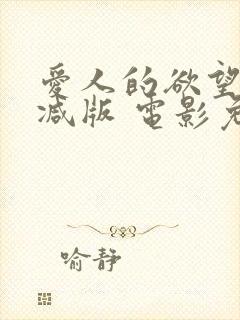 爱人的欲望
减版 电影免
喻静